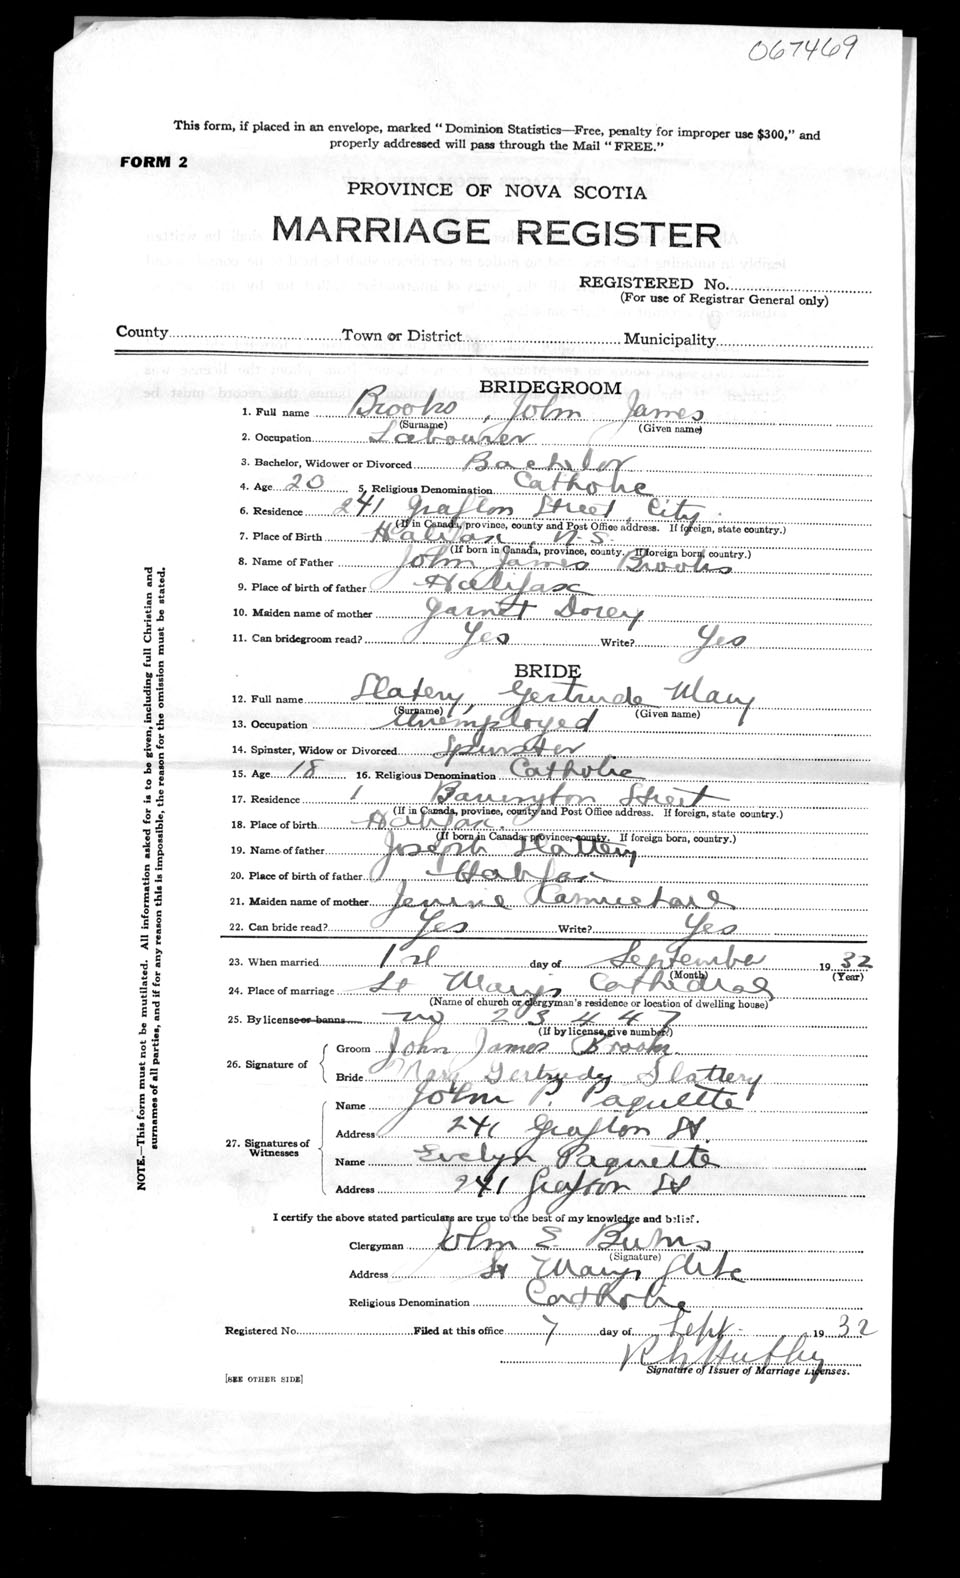 067469
This form, if placed in an envelope, marked "Dominion Statistics—Free, penalty for improper use $300," and
properly addressed will pass through the Mail "FREE."
FORM 2
PROVINCE OF NOVA SCOTIA
MARRIAGE REGISTER
REGISTERED No.
(For use of Registrar General only)
County Town or District Municipality
BRIDEGROOM
1. Full name Brooks, John James
(Surname) (Given name)
2. Occupation Labourer
3. Bachelor, Widower or Divorced Bachelor
4. Age 20 5. Religious Denomination Catholic
6. Residence 241 Grafton Street, City
(If in Canada, province, county and Post Office address. If foreign, state country.)
7. Place of Birth Halifax, N.S.
(If born in Canada, province, county. If foreign born, country.)
8. Name of Father John James Brooks
9. Place of birth of father Halifax
10. Maiden name of mother Garnet Dorey
11. Can bridegroom read? Yes Write? Yes
BRIDE
12. Full name Slatery, Gertrude Mary
(Surname) (Given name)
13. Occupation Unemployed
14. Spinster, Widow or Divorced Spinster
15. Age 18 16. Religious Denomination Catholic
17. Residence 1 Barrington Street
(If in Canada, province, county and Post Office address. If foreign, state country.)
18. Place of birth Halifax.
(If born in Canada, province, county. If foreign born, country.)
19. Name of father Joseph Slattery
20. Place of birth of father Halifax
21. Maiden name of mother Jennie
22. Can bride read? Yes Write? Yes
23. When married 1st day of September 1932
(Month) (Year)
24. Place of marriage St Mary's Cathedral
(Name of church or clergyman's residence or location of dwelling house)
25. By license or banns no 23447
(If by license, give number)
26. Signature of Groom John James Brooks.
Bride Mary Gertrude Slattery
27. Signatures of Witnesses Name John P. Paquette
Address 241 Grafton St.
Name Evelyn Paquette
Address 241 Grafton St
I certify the above stated particulars are true to the best of my knowledge and belief.
Clergyman John E. Burns
(Signature)
Address St Marys Glebe
Religious Denomination Catholic
Registered No. Filed at this office 7 day of Sept. 1932
Signature of Issuer of Marriage Licenses.
[SEE OTHER SIDE]
NOTE.—This form must not be mutilated. All information asked for is to be given, including full Christian and
surnames of all parties, and if for any reason this is impossible, the reason for the omission must be stated.